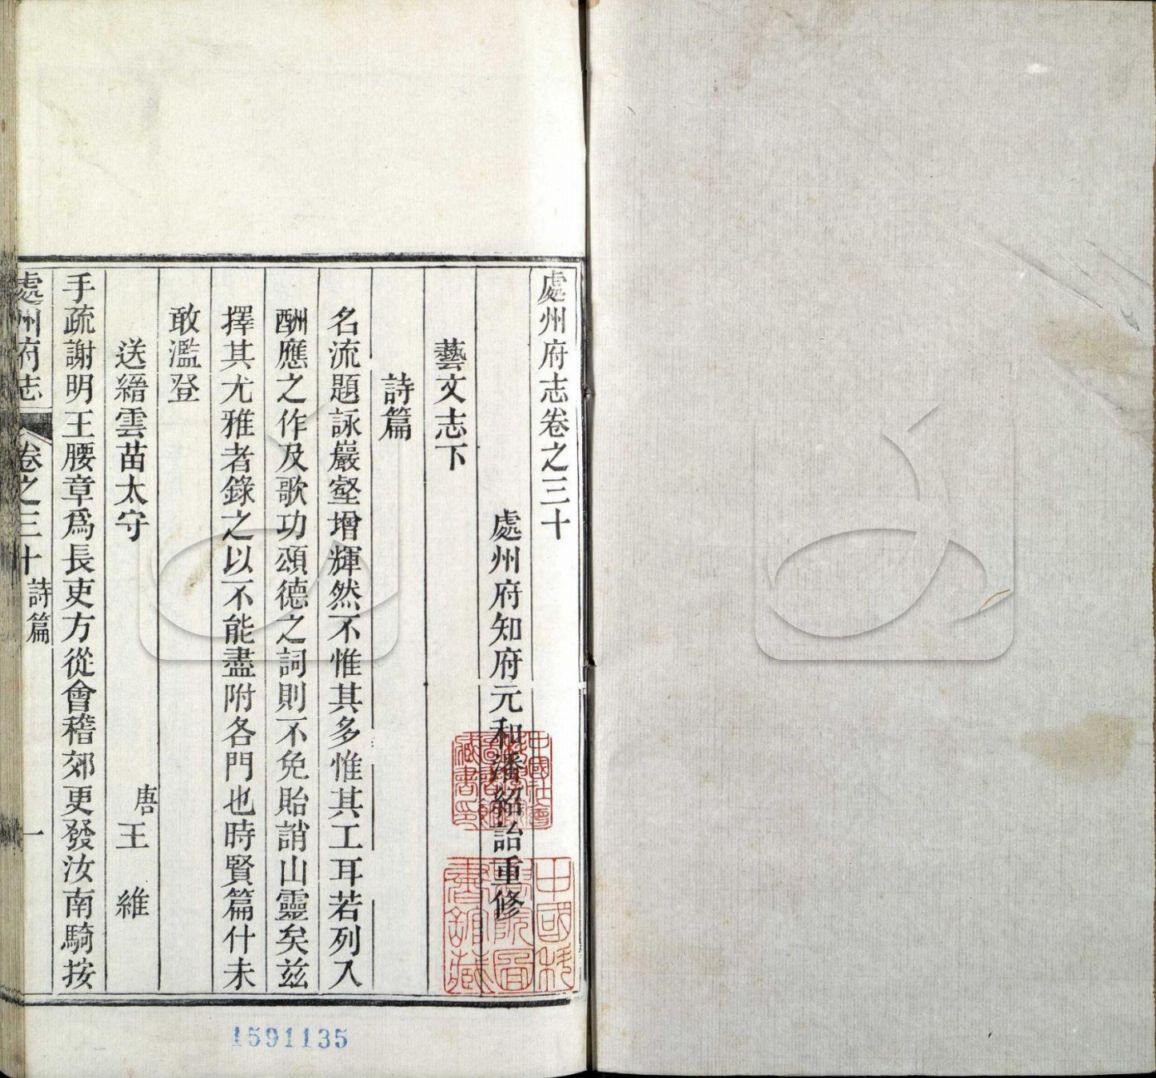 處州府志卷之三十
處州府知府元和潘紹詒重修
藝文志下
詩篇
名流題詠巖壑增輝然不惟其多惟其工耳若列入
酬應之作及歌功頌德之詞則不免貽誚山靈矣茲
擇其尤雅者錄之以不能盡附各門也時賢篇什未
敢濫登
送縉雲苗太守
唐王維
手疏謝明王腰章爲長吏方從會稽郊更發汝南騎按
處州府志
卷之三十
詩篇
一
中國科
學院圖
書館藏
1591135